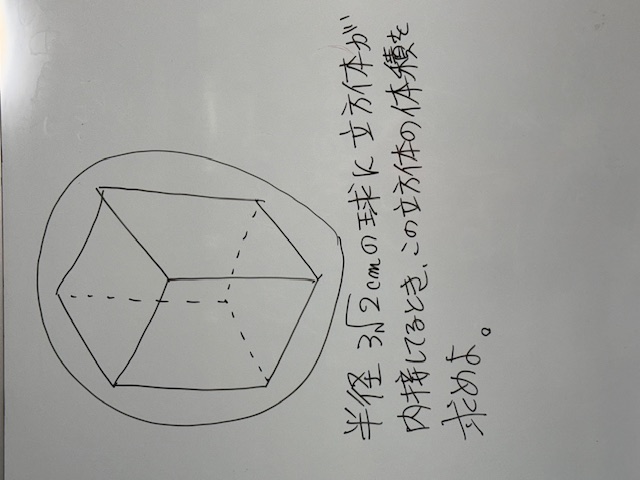 半径 3√2cmの球に立方体が
内接してるとき、この立方体の体積を
求めよ。